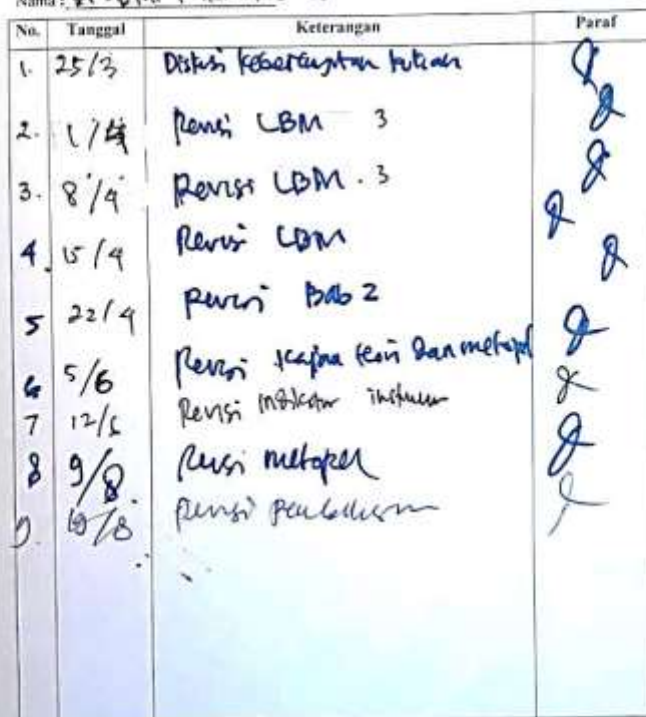 Nama :
No. Tanggal Keterangan Paraf
1. 25/3 Diskusi
2. 1/4 Revisi LBM 3
3. 8/4 Revisi LBM . 3
4. 15/4 Revisi LBM
5 22/4 Revisi Bab 2
6 5/6 Revisi kajian teori dan metopel
7 Revisi indikator instrumen
8 9/8 Revisi metopel
9. Revisi